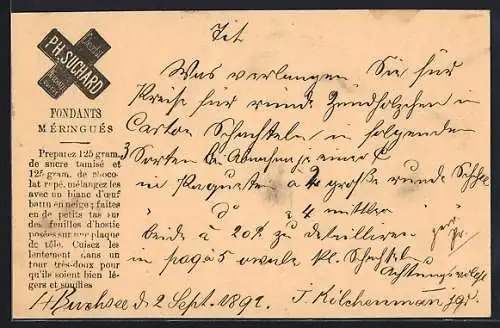 PH. SUCHARD
FONDANTS
MÉRINGUÉS
Préparez 125 gram.
de sucre tamisé et
125 gram. de chocolat
rapé, mélangez les
avec un blanc d'œuf
battu en neige; faites
en de petits tas sur
des feuilles d'hostie
posées sur une plaque
de tôle. Cuisez les
lentement dans un
four très-doux pour
qu'ils soient bien légers
et soufflés
Tit
Was verlangen Sie für
Preise für runde Zündhölzchen in
Carton Schachteln, in folgenden
3 Sorten bei Abnahme
in Paqueten à 2 große runde
d° à 4 mittlere
beide à 20 cts zu detaillieren
in pag à 5 ovale kl. Schachteln
Achtungsvollst
H'Buchsee d. 2 Sept. 1892. J. Kilchenmann jgr.